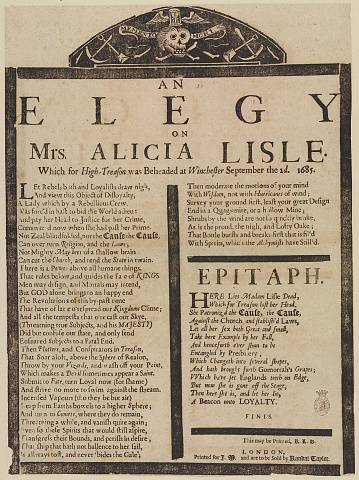 MEMENTO MORI
AN
ELEGY
ON
Mrs. ALICIA LISLE.
Which for High-Treason was Beheaded at Winchester September the 2d. 1685.
LEt Rebels blush and Loyalists draw nigh,
And view this Object of Disloyalty,
A Lady which by a Rebellious Crew,
Was forc'd in hast to bid the World adieu:
and pay her Head to Justice for her Crime,
Commit'd done when she had past her Prime.
Not Zeal blindfolded, nor the Cause the Cause,
Can over turn Religion, and the Laws;
Not Mighty of a shallow brain
Can cut the Church, and rend the State in twain.
There is a Power above all humane things,
That rules below, and guides the Fate of KINGS
Men may design, and Morals may intend,
But GOD alone brings to an happy end
The Revolutions of this by-past time
That have of late o'respread our Kingdoms Clime;
And all the tempests that o're cast our State,
(Threatning your Subjects, and his MAJESTY)
Did but ensnare our state, and only send
Ensnared Subjects to a Fatal End.
Then Plotters, and Conspirators in Treason,
That Soar aloft, above the Sphere of Reason,
Throw by your Vizards, and wash off your Paint,
Which makes a Devil sometimes appear a Saint.
Submit to Fate, turn Loyal now (for shame)
And strive no more to swim against the stream.
Incensed Vapours (tho they be but air)
Leap from Earths bowels to a higher Sphere;
And turn to Comets, where they do remain,
Threatning a while, and vanish quite again;
you do these Spirits that would still aspire,
Transgress their Bounds, and perish in desire,
That Ship that hath not ballance to her sail,
Is always tost, and never bides the Gale,
Then moderate the motions of your mind
With Wisdom, not with Hurricanes of wind;
Survey your ground first, least your great Design
End in a Quagmire, or a hollow Mine;
Shrubs by the wind are not so quickly brake,
As is the proud, the nigh, and Lofty Oake;
That Bottle bursts and breaks first that is fil'd
With Spirits, which the Alchymists have Still'd.
EPITAPH.
HERE Lies Madam Lisle Dead,
Which for Treason lost her Head,
She Patroniz'd the Cause, the Cause,
Against the Church, and stablish'd Laws,
Let all her sex both Great and small,
Take here Example by her Fall,
And henceforth ever shun to be
Entangled by Presbitery,
Which Changeth into several shapes,
And hath brought forth Gomorrah's Grapes;
Which have set Englands teeth on Edge,
But now she is gone off the Stage,
Then here she is, and let her lie,
A Beacon unto LOYALTY.
FINIS.
This may be Printed, R. L. S.
LONDON,
Printed for J. M. and are to be Sold by Randal Taylor.